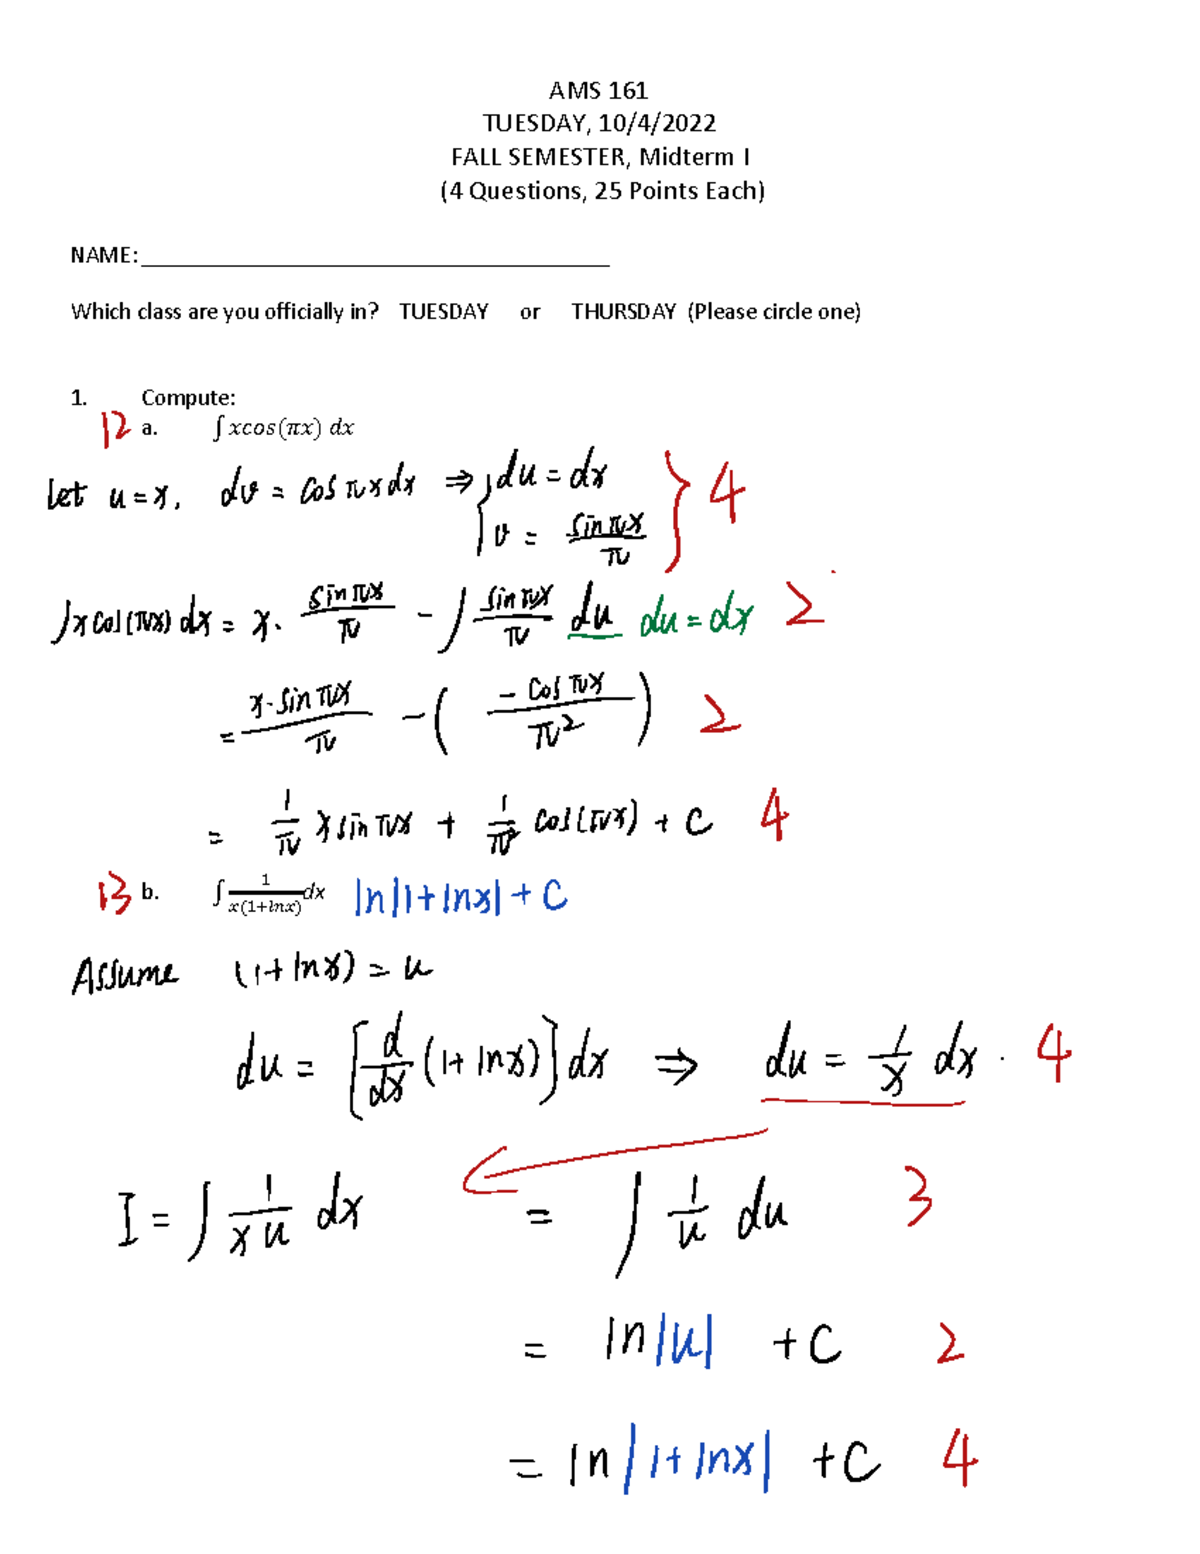 AMS 161
TUESDAY, 10/4/2022
FALL SEMESTER, Midterm I
(4 Questions, 25 Points Each)
NAME: ______________________________________
Which class are you officially in? TUESDAY or THURSDAY (Please circle one)
1. Compute:
12 a. ∫ xcos(πx) dx
Let u = x, dv = cos πx dx ⇒ { du = dx } 4
v = sin πx / π
∫x cos(πx) dx = x · sin πx / π − ∫ sin πx / π du du = dx 2
= x · sin πx / π − ( − cos πx / π² ) 2
= 1/π x sin πx + 1/π² cos(πx) + C 4
13 b. ∫ 1/x(1+lnx) dx ln|1+lnx| + C
Assume (1 + lnx) = u
du = [d/dx (1 + lnx)] dx ⇒ du = 1/x dx · 4
I = ∫ 1/xu dx = ∫ 1/u du 3
= ln|u| + C 2
= ln|1+lnx| + C 4